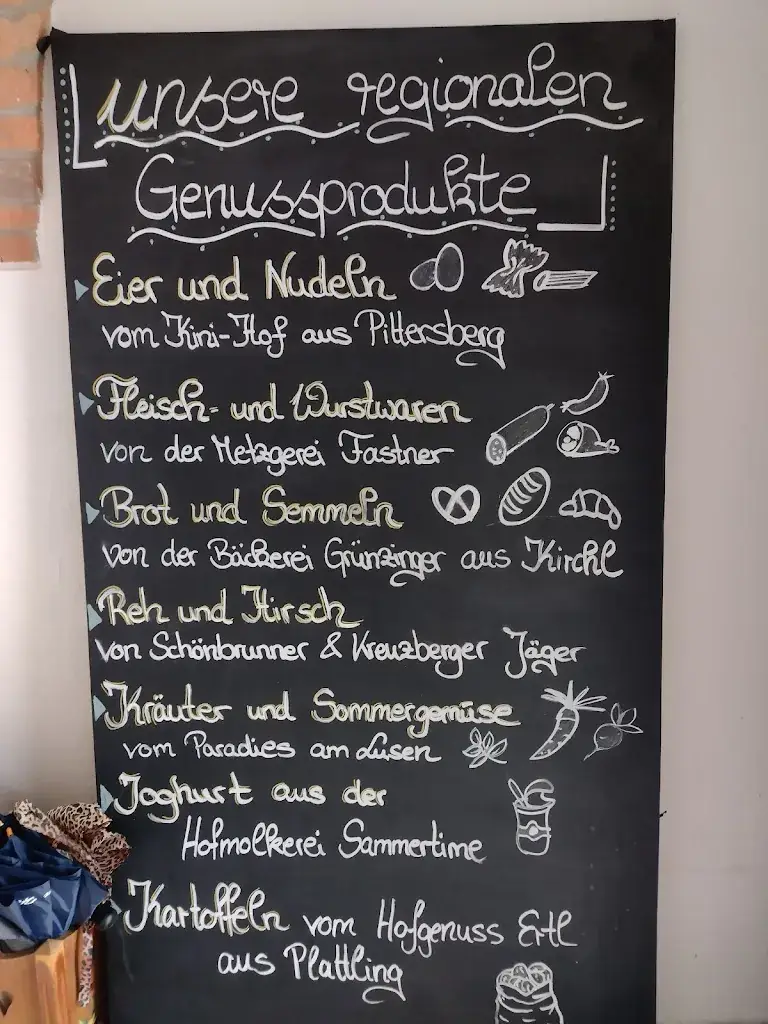 unsere regionalen
Genussprodukte
Eier und Nudeln
vom Kini-Hof aus Pittersberg
Fleisch- und Wurstwaren
von der Metzgerei Fastner
Brot und Semmeln
von der Bäckerei Grünzinger aus Kirchl
Reh und Hirsch
von Schönbrunner & Kreuzberger Jäger
Kräuter und Sommergemüse
vom Paradies am Lusen
Joghurt aus der
Hofmolkerei Sammertime
Kartoffeln vom Hofgenuss Ertl
aus Plattling